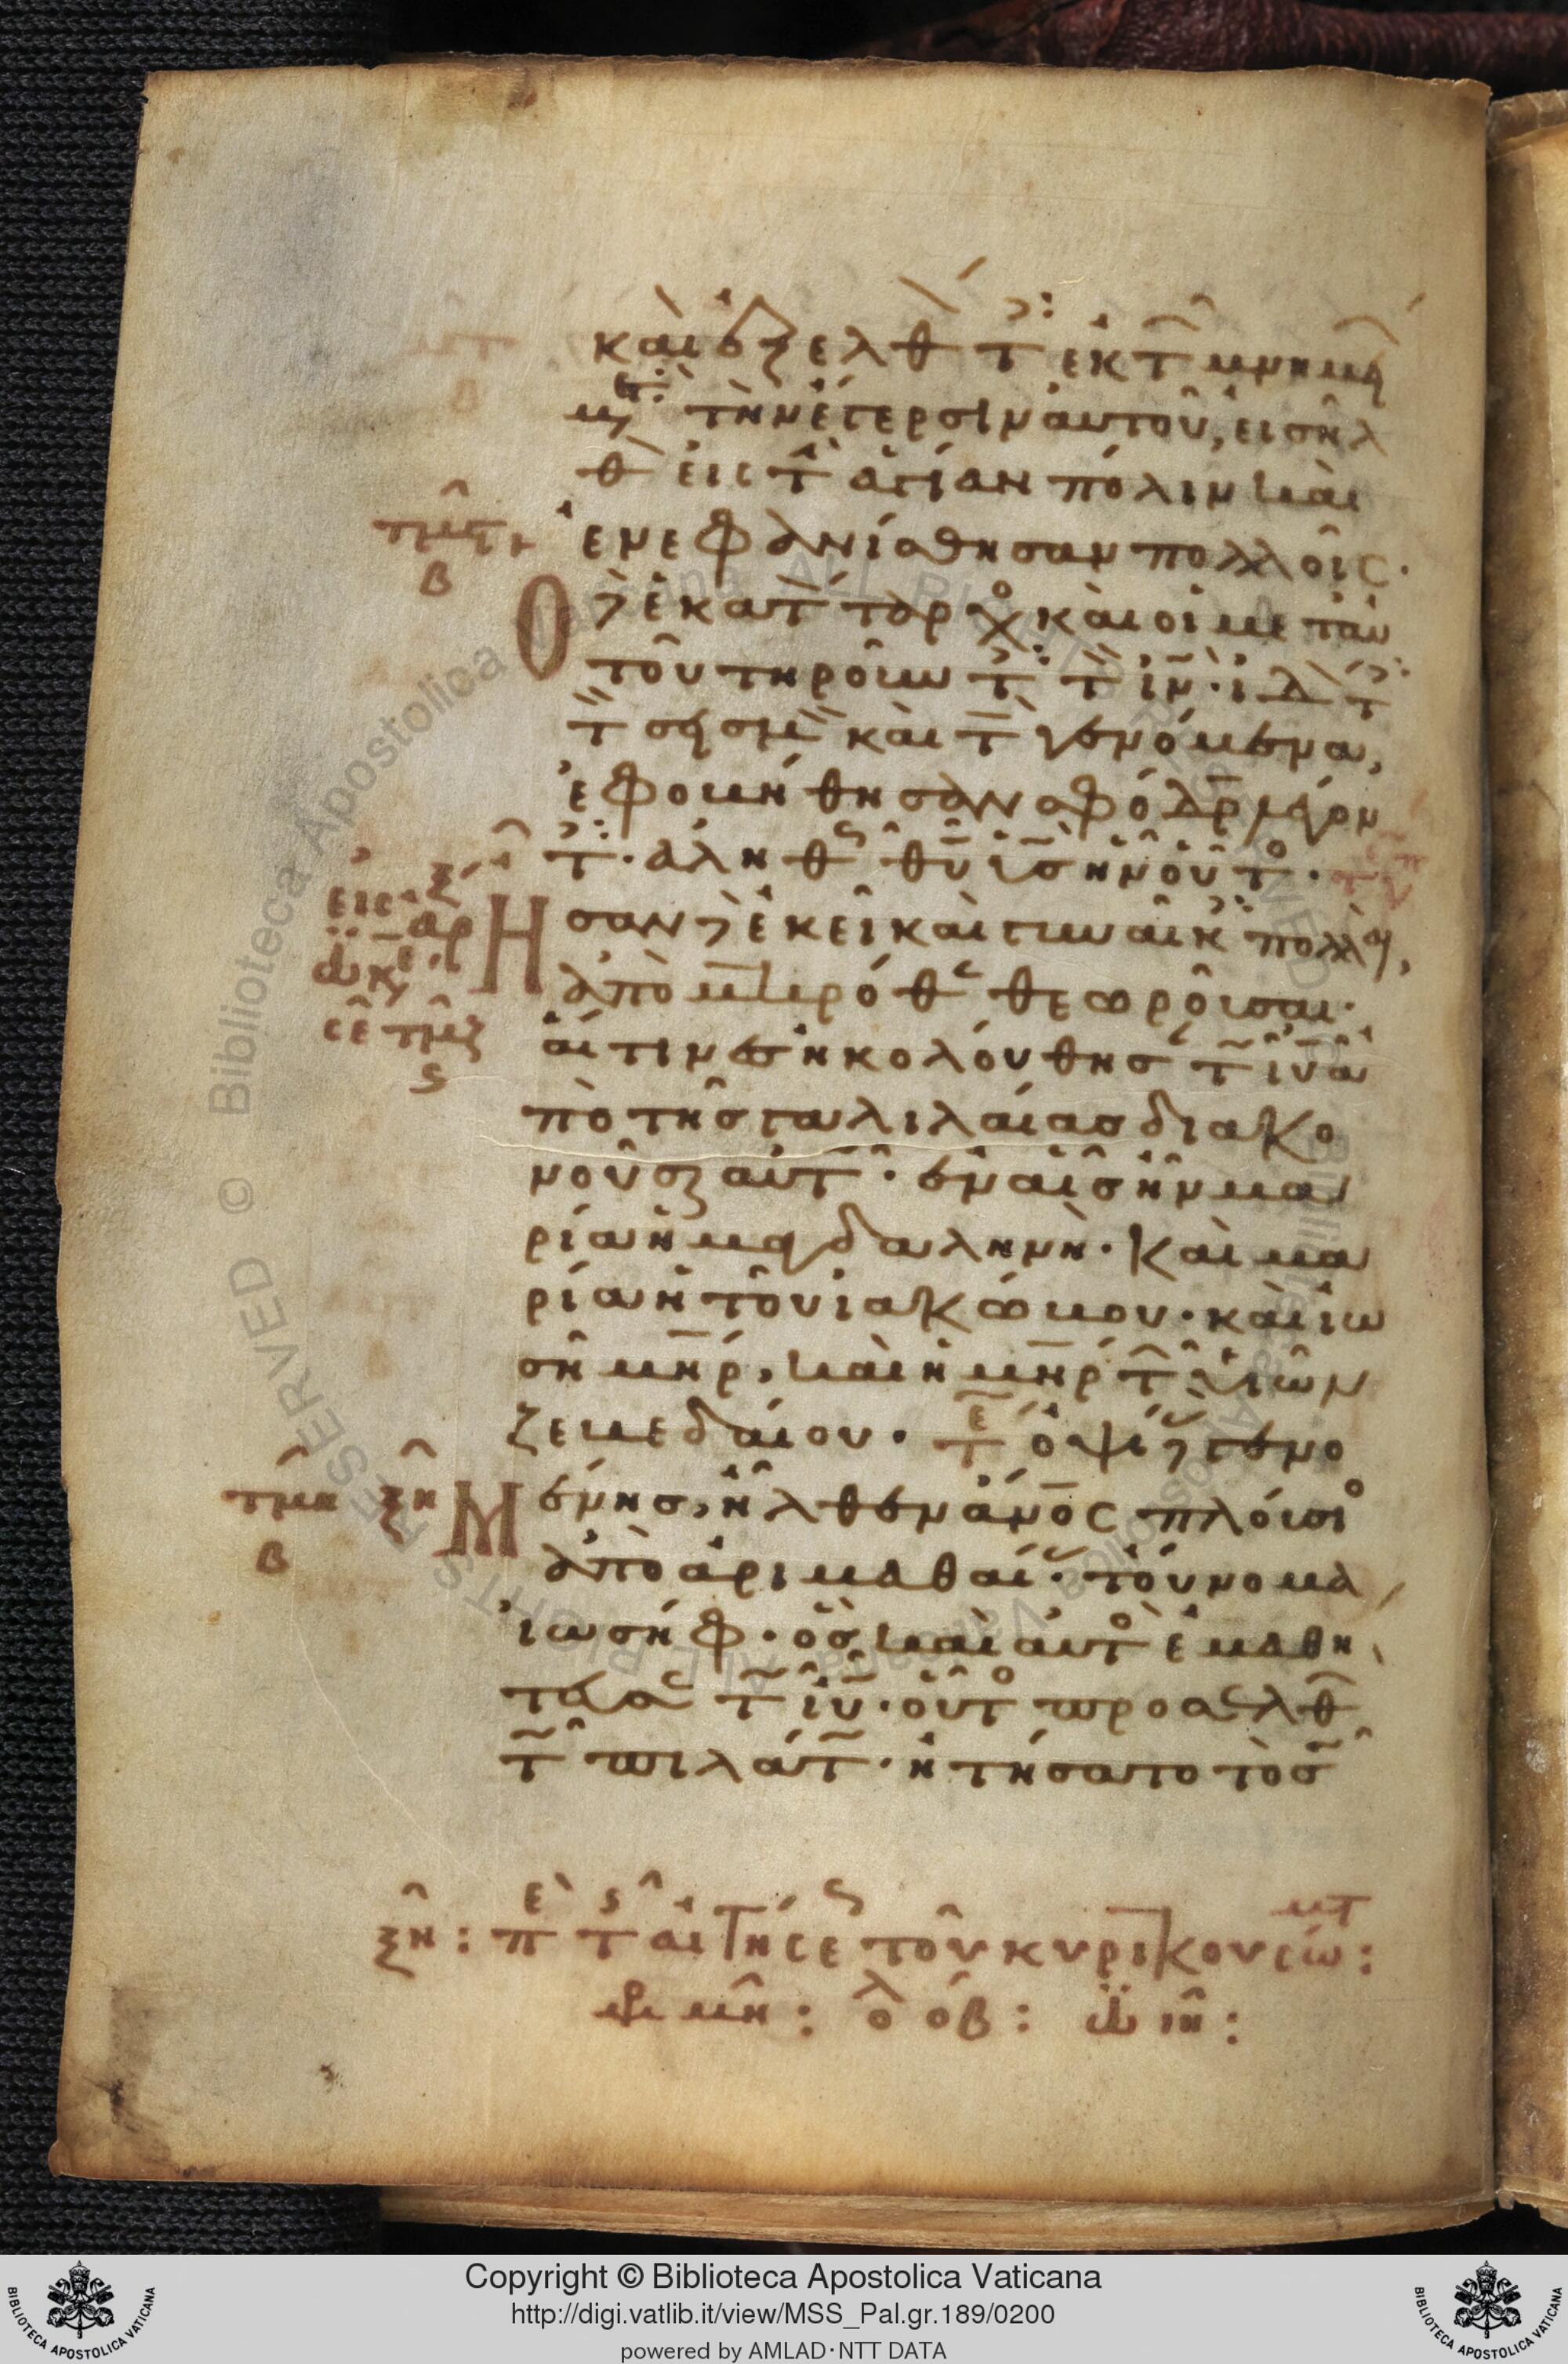 καὶ ἐξελθ τ ἐκ τ μνημ
μτ τὴν ἔγερσιν αυτοῦ, εισηλ
θ εις τ ἁγίαν πόλιν καὶ
τμς
ἐνεφανίσθησαν πολλοῖς·
β
Ο δὲ ἑκατ ταρχ καὶ οἱ με τ αυ
τοῦ τηροῦν τ τ ιν· ιδ τ
τ σεισμ καὶ τ γενόμενα,
ἐφοβήθησαν σφόδρ λέγον
τ· ἀληθ θυ υσ ην οὗτο·
Ησαν δὲ ἐκεῖ καὶ γυναῖκ πολλαὶ,
ἀπὸ μακρόθ θεωροῦσαι·
αἵτινες ἠκολούθησ τ ιυ ἀ
ϛ
πὸ τῆς γαλιλαίας διακο
νοῦσαι αὐτ· ἐν αἷς ἦν μα
ρία ἡ μαγδαληνὴ· καὶ μα
ρία ἡ τοῦ ιακώβου· καὶ ιω
σῆ μηρ, καὶ ἡ μηρ τ υἱῶν
ζεβεδαίου· ὀψί δὲ γενο
τμη ξη
μένης, ἦλθεν ἀνος πλούσιο
β
ἀπὸ ἀριμαθαί· τοὔνομα
ιωσήφ· ὃς καὶ αὐτο ἐμαθή
τευσε τ ιυ· οὗτο προσελθ
τ πιλάτ· ἠτήσατο τὸ σ
ξη: π τ αἰτησ τοῦ κυριακου σώμτ:
μη: λο οβ: ιη:
Copyright © Biblioteca Apostolica Vaticana
http://digi.vatlib.it/view/MSS_Pal.gr.189/0200
powered by AMLAD·NTT DATA